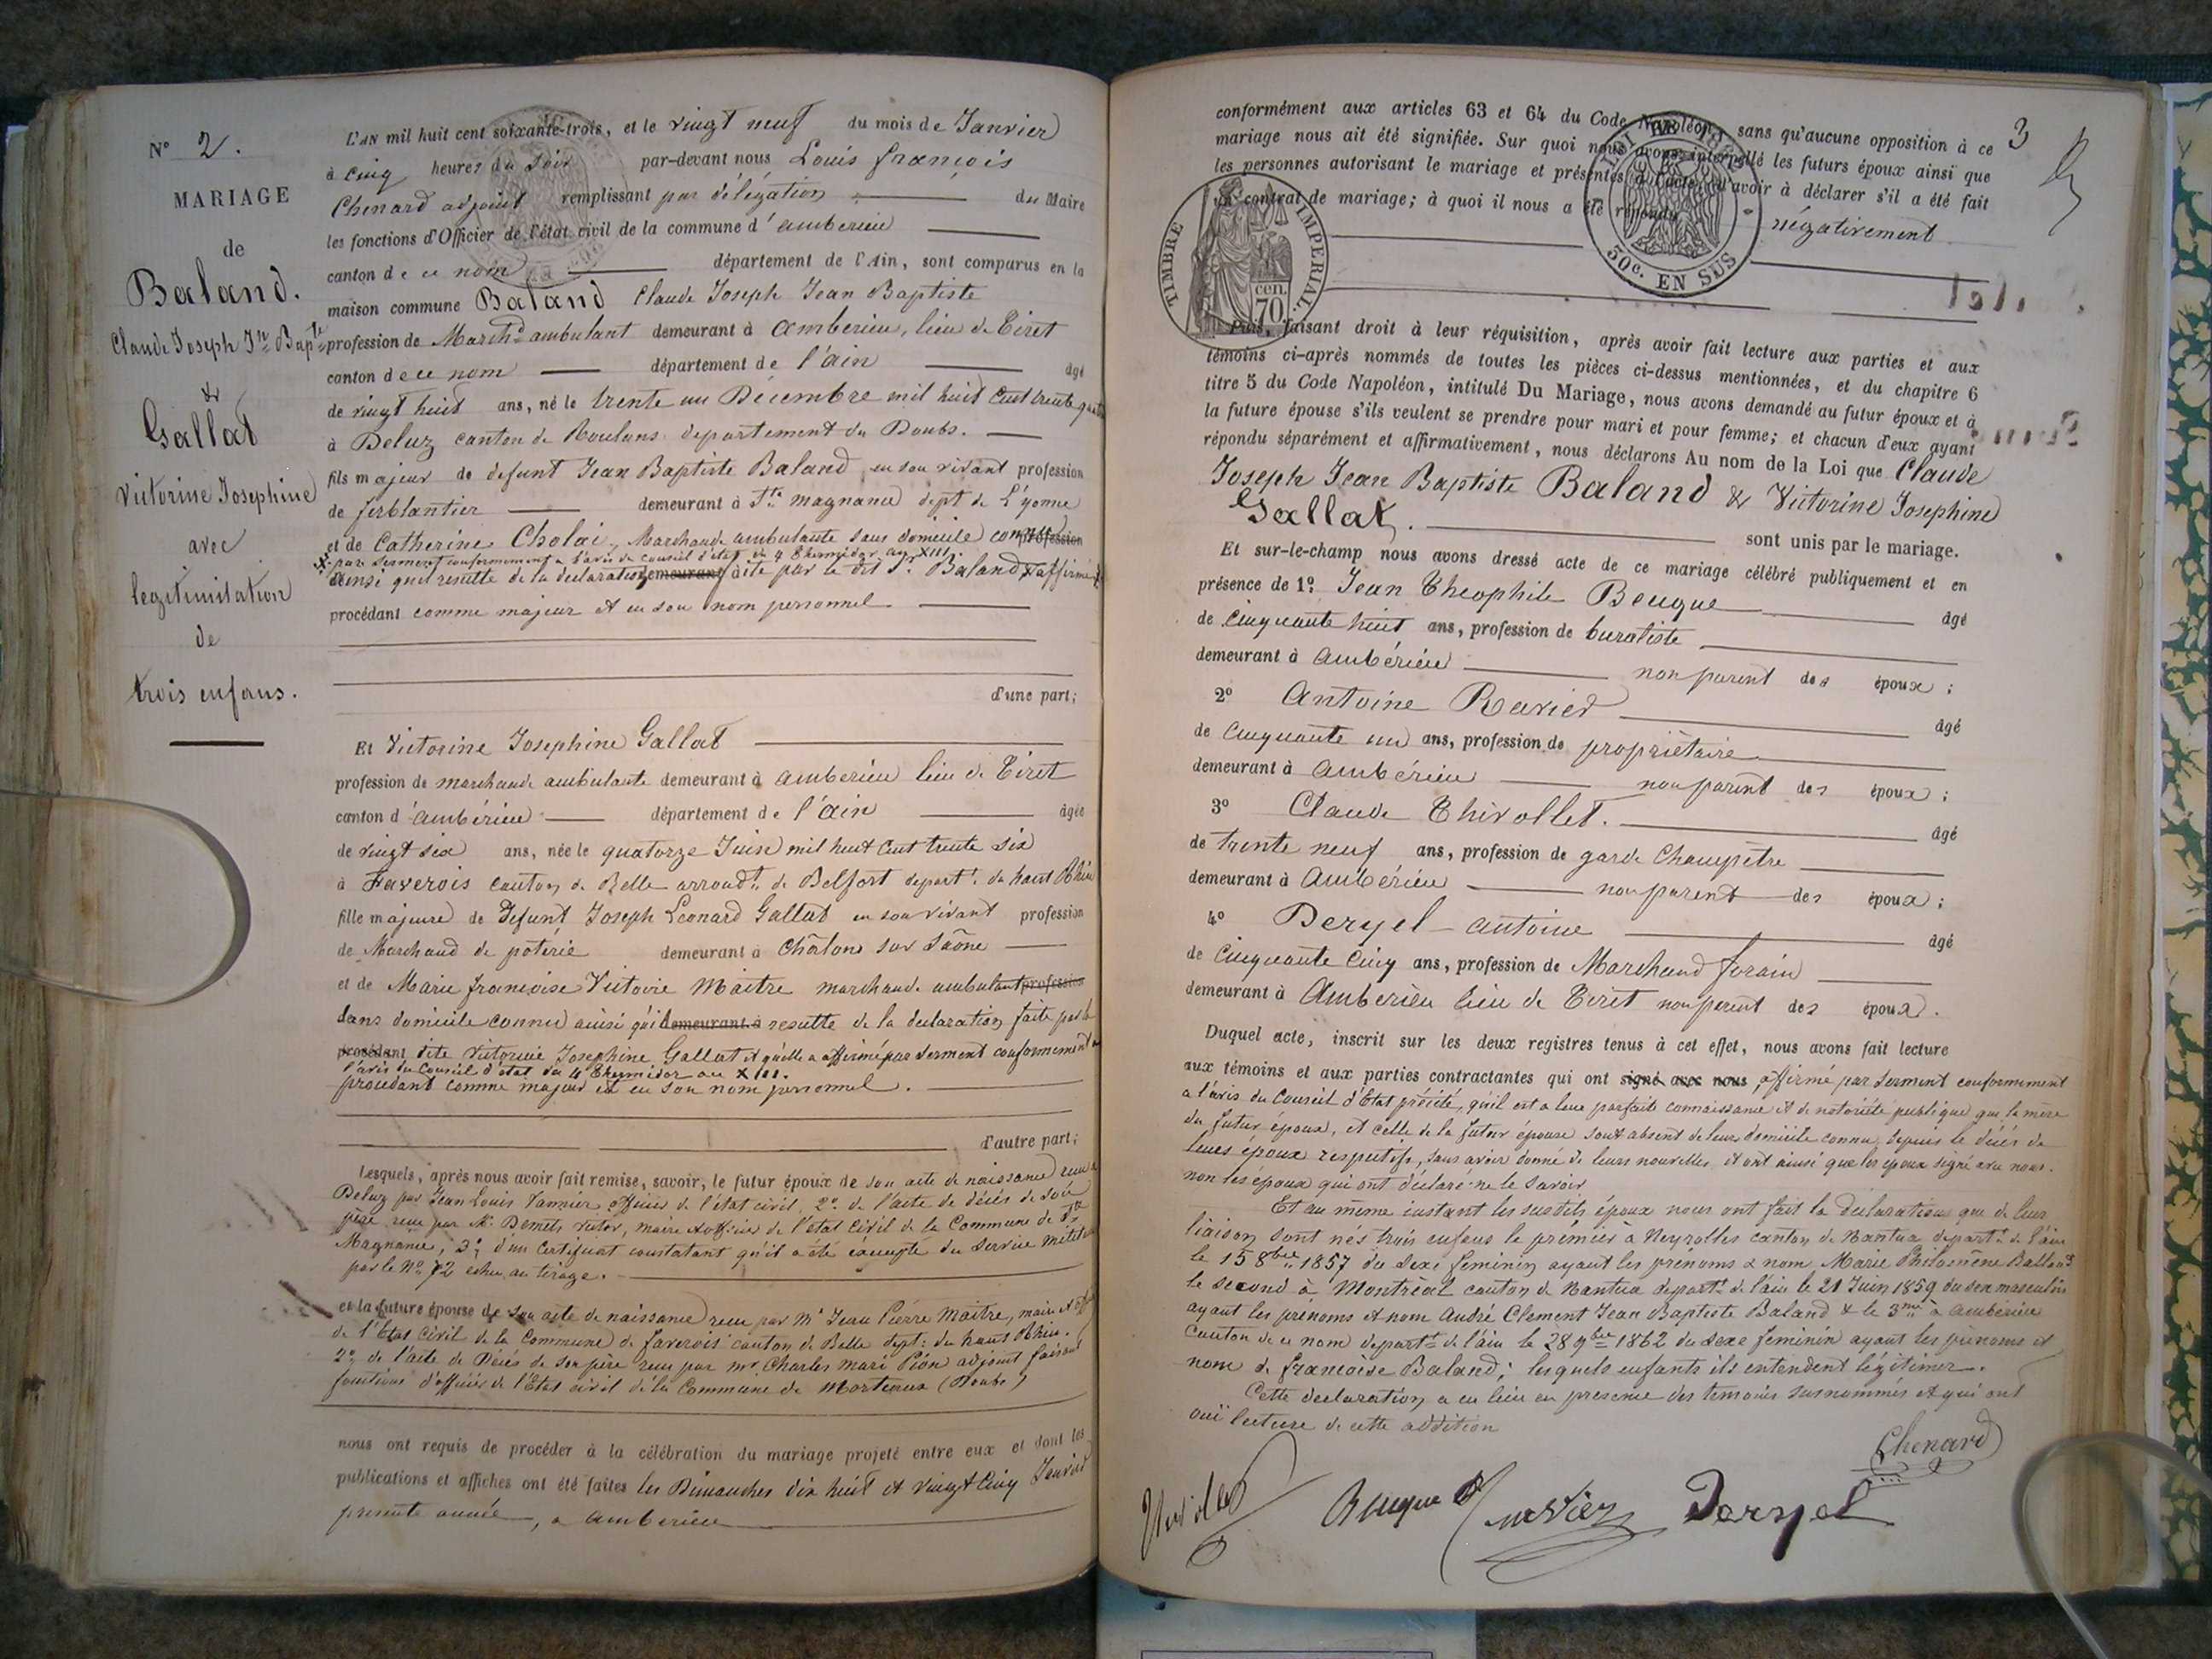 N° 2.
MARIAGE
de
Baland.
Claude Joseph Jn Bapte
&
Gallat
Victorine Josephine
avec
legitimitation
de
trois enfans.
L'AN mil huit cent soixante-trois, et le vingt neuf du mois de Janvier
à cinq heures du soir par-devant nous Louis françois
Chenard adjoint remplissant par délégation du Maire
les fonctions d'Officier de l'état civil de la commune d'amberieu
canton de ce nom département de l'Ain, sont comparus en la
maison commune Baland Claude Joseph Jean Baptiste
profession de Marchd ambulant demeurant à amberieu, lieu de Tiret
canton de ce nom département de l'ain âgé
de vingt huit ans, né le trente un Décembre mil huit Cent trente quatre
à Deluz canton de Roulans departement du Doubs.
fils majeur de defunt Jean Baptiste Baland en son vivant profession
de ferblantier demeurant à Ste magnance dept de L'yonne
et de Catherine Cholai, Marchande ambulante sans domicile connu profession
par serment conformement a l'avis du conseil d'état du 4 thermidor an XIII.
ainsi quil resulte de la declaration demeurant à faite par le dit Sr Baland & affirmé
procédant comme majeur et en son nom personnel.
d'une part;
Et Victorine Josephine Gallat
profession de marchande ambulante demeurant à amberieu lieu de Tiret
canton d'ambérieu département de l'ain âgée
de vingt six ans, née le quatorze Juin mil huit Cent trente six
à Faverois canton de Delle arrondt de Belfort depart. du haut Rhin
fille majeure de Defunt Joseph Leonard Gallat en son vivant profession
de Marchand de poterie demeurant à Châlons sur Saône
et de Marie françoise Victoire Maitre marchande ambulante profession
sans domicile connu ainsi qu'il demeurant à resulte de la declaration faite par la
procédant dite Victorine Josephine Gallat et qu'elle a affirmé par serment conformement a
l'avis du Conseil d'état du 4 thermidor an XIII.
procedant comme majeur et en son nom personnel.
d'autre part;
Lesquels, après nous avoir fait remise, savoir, le futur époux de son acte de naissance recu a
Deluz par Jean Louis Vannier officier de l'état civil, 2° de l'acte de décés de son
père recu par Mr Demets Victor, maire et officier de l'état Civil de la Commune de Ste
Magnance, 3° d'un Certificat constatant qu'il a été exempté du service militaire
par le No 72 echu au tirage.
et la future épouse de son acte de naissance recu par Mr Jean Pierre Maitre, maire et off
de l'Etat Civil de la Commune de faverois canton de Delle dept: du haut Rhin.
2° de l'acte de Décés de son père recu par mr Charles mari Pión adjoint faisant
fonctions d'officier de l'Etat civil de la Commune de Morteaux (Doubs)
nous ont requis de procéder à la célébration du mariage projeté entre eux et dont les
publications et affiches ont été faites les Dimanches dix huit et vingt Cinq Janvier
presente année, a amberieu
3
conformément aux articles 63 et 64 du Code Napoléon, sans qu'aucune opposition à ce
mariage nous ait été signifiée. Sur quoi nous avons interpellé les futurs époux ainsi que
les personnes autorisant le mariage et présentes à l'acte, d'avoir à déclarer s'il a été fait
un contrat de mariage; à quoi il nous a été répondu négativement
TIMBRE IMPERIAL.
cen. 70.
30c. EN SUS
Puis, faisant droit à leur réquisition, après avoir fait lecture aux parties et aux
témoins ci-après nommés de toutes les pièces ci-dessus mentionnées, et du chapitre 6
titre 5 du Code Napoléon, intitulé Du Mariage, nous avons demandé au futur époux et à
la future épouse s'ils veulent se prendre pour mari et pour femme; et chacun d'eux ayant
répondu séparément et affirmativement, nous déclarons Au nom de la Loi que Claude
Joseph Jean Baptiste Baland & Victorine Josephine
Gallat. sont unis par le mariage.
Et sur-le-champ nous avons dressé acte de ce mariage célébré publiquement et en
présence de 1° Jean Theophile Bouque âgé
de Cinquante huit ans, profession de buraliste
demeurant à Ambérieu non parent des époux;
2° Antoine Ravier âgé
de Cinquante un ans, profession de propriétaire
demeurant à Ambérieu non parent des époux;
3° Claude Thivollet. âgé
de trente neuf ans, profession de garde Champêtre
demeurant à Ambérieu non parent des époux;
4° Deryel antoine âgé
de Cinquante Cinq ans, profession de Marchand forain
demeurant à Amberieu lieu de Tiret non parent des époux.
Duquel acte, inscrit sur les deux registres tenus à cet effet, nous avons fait lecture
aux témoins et aux parties contractantes qui ont signé avec nous, affirmé par serment conformement
a l'avis du Conseil d'Etat précité, qu'il est a leur parfaite connaissance et de notoriété publique que la mère
du futur époux, et celle de la futur épouse sont absent de leur domicile connu, depuis le décés de
leurs époux respectifs, sans avoir donné de leurs nouvelles, et ont ainsi que les epoux signé avec nous.
non les époux qui ont déclaré ne le savoir
Et au même instant les susdits époux nous ont fait la Déclaration que de leur
liaison sont nés trois enfans le premier à Neyrolles canton de Nantua depart. de l'ain
le 15 8bre 1857 du Sexe feminin ayant les prénoms & nom Marie Philomène Balland
le second à Montréal canton de Nantua depart. de l'ain le 21 Juin 1859 du sex masculin
ayant les prenoms et nom André Clement Jean Baptiste Baland & le 3me à ambérieu
Canton de ce nom depart. de l'ain le 28 9bre 1862 du sexe feminin ayant les prénoms et
nom de francoise Baland; lesquels enfants ils entendent légitimer.
Cette declaration a eu lieu en presence des temoins susnommés et qui ont
oui lecture de cette addition
Chenard
Bouque Ravier Deryel